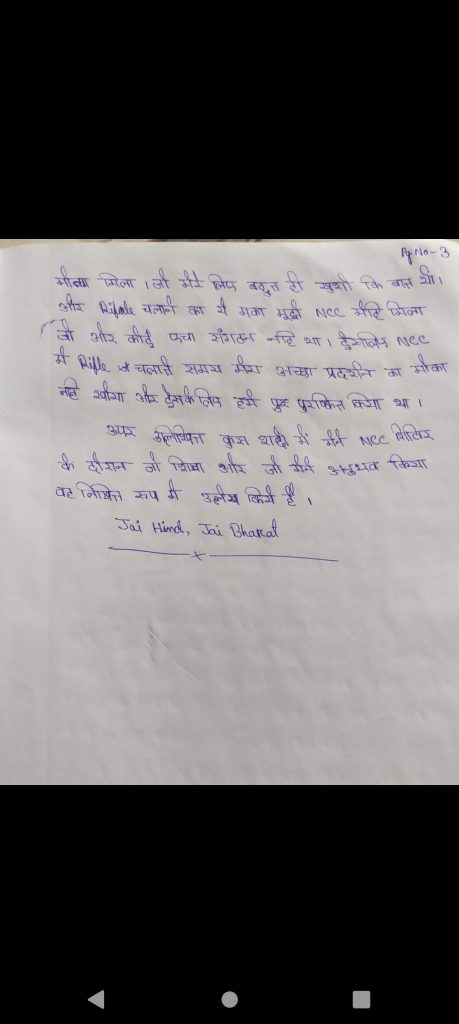 Pg No - 3
मौका मिला । जो मेरे लिए बहुत ही खुशी कि बात थी।
और Rifle चलाने का ये मका मुझे NCC मेंहि मिला
जो और कोई पचा संगठन नहि था। इसलिए NCC
में Rifle चलाते समय मेरा अच्छा प्रदर्शन का मौका
नहि खोया और इसके लिए हमे पुरष्कित किया था।
उपर उलिखित कुछ शब्दो में मैने NCC शिविर
के दौरान जो शिखा और जो मैने अनुभव किया
वह लिखित रुप में उलेख किये हैं ।
Jai Hind, Jai Bharat